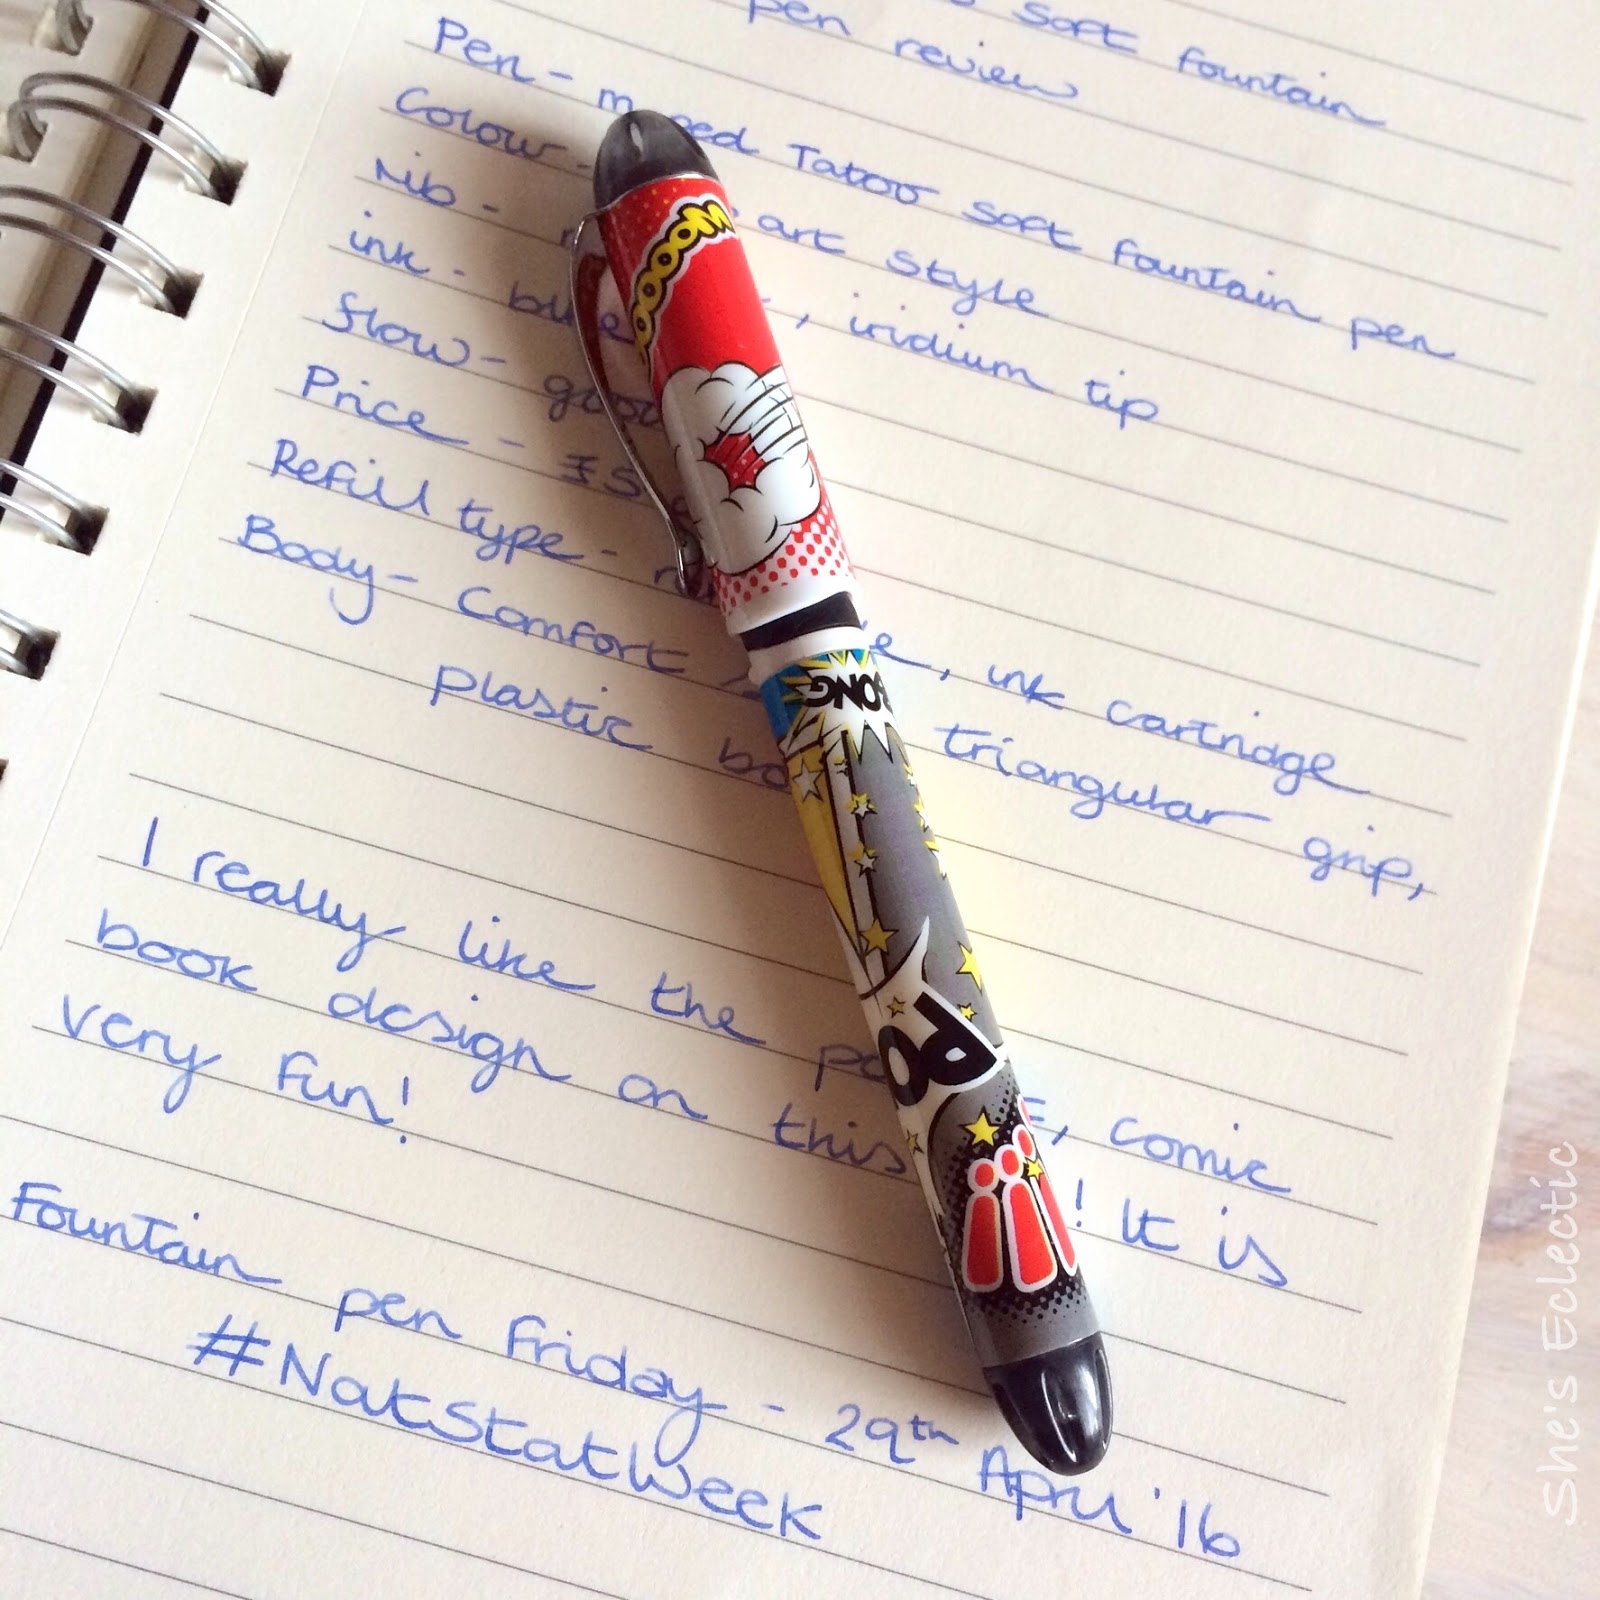 soft fountain
pen review
Pen - Tatoo soft fountain pen
Colour - art style
Nib - , iridium tip
ink - blue
flow - good
Price -
Refill type - , ink cartridge
Body - Comfort triangular grip,
plastic
I really like the , comic
book design on this ! It is
very fun!
Fountain pen Friday - 29th April '16
#NatStatWeek
WOOOOO
BONG
PO
She's Eclectic